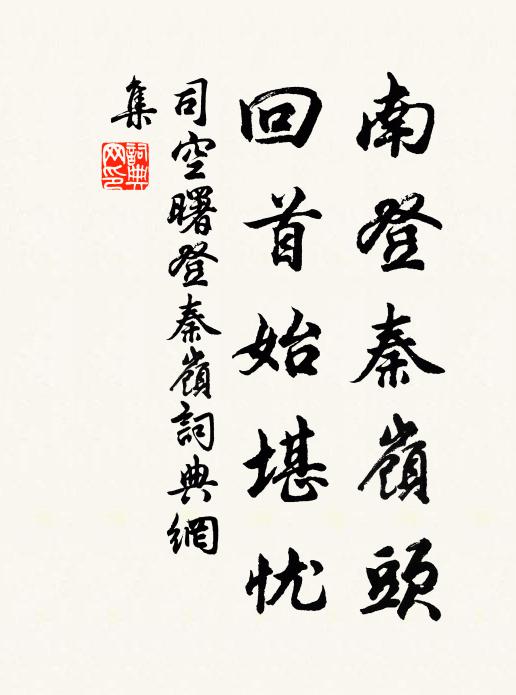 南登秦嶺頭
回首始堪忧
司空曙登秦嶺詞典網
集
詞典网印